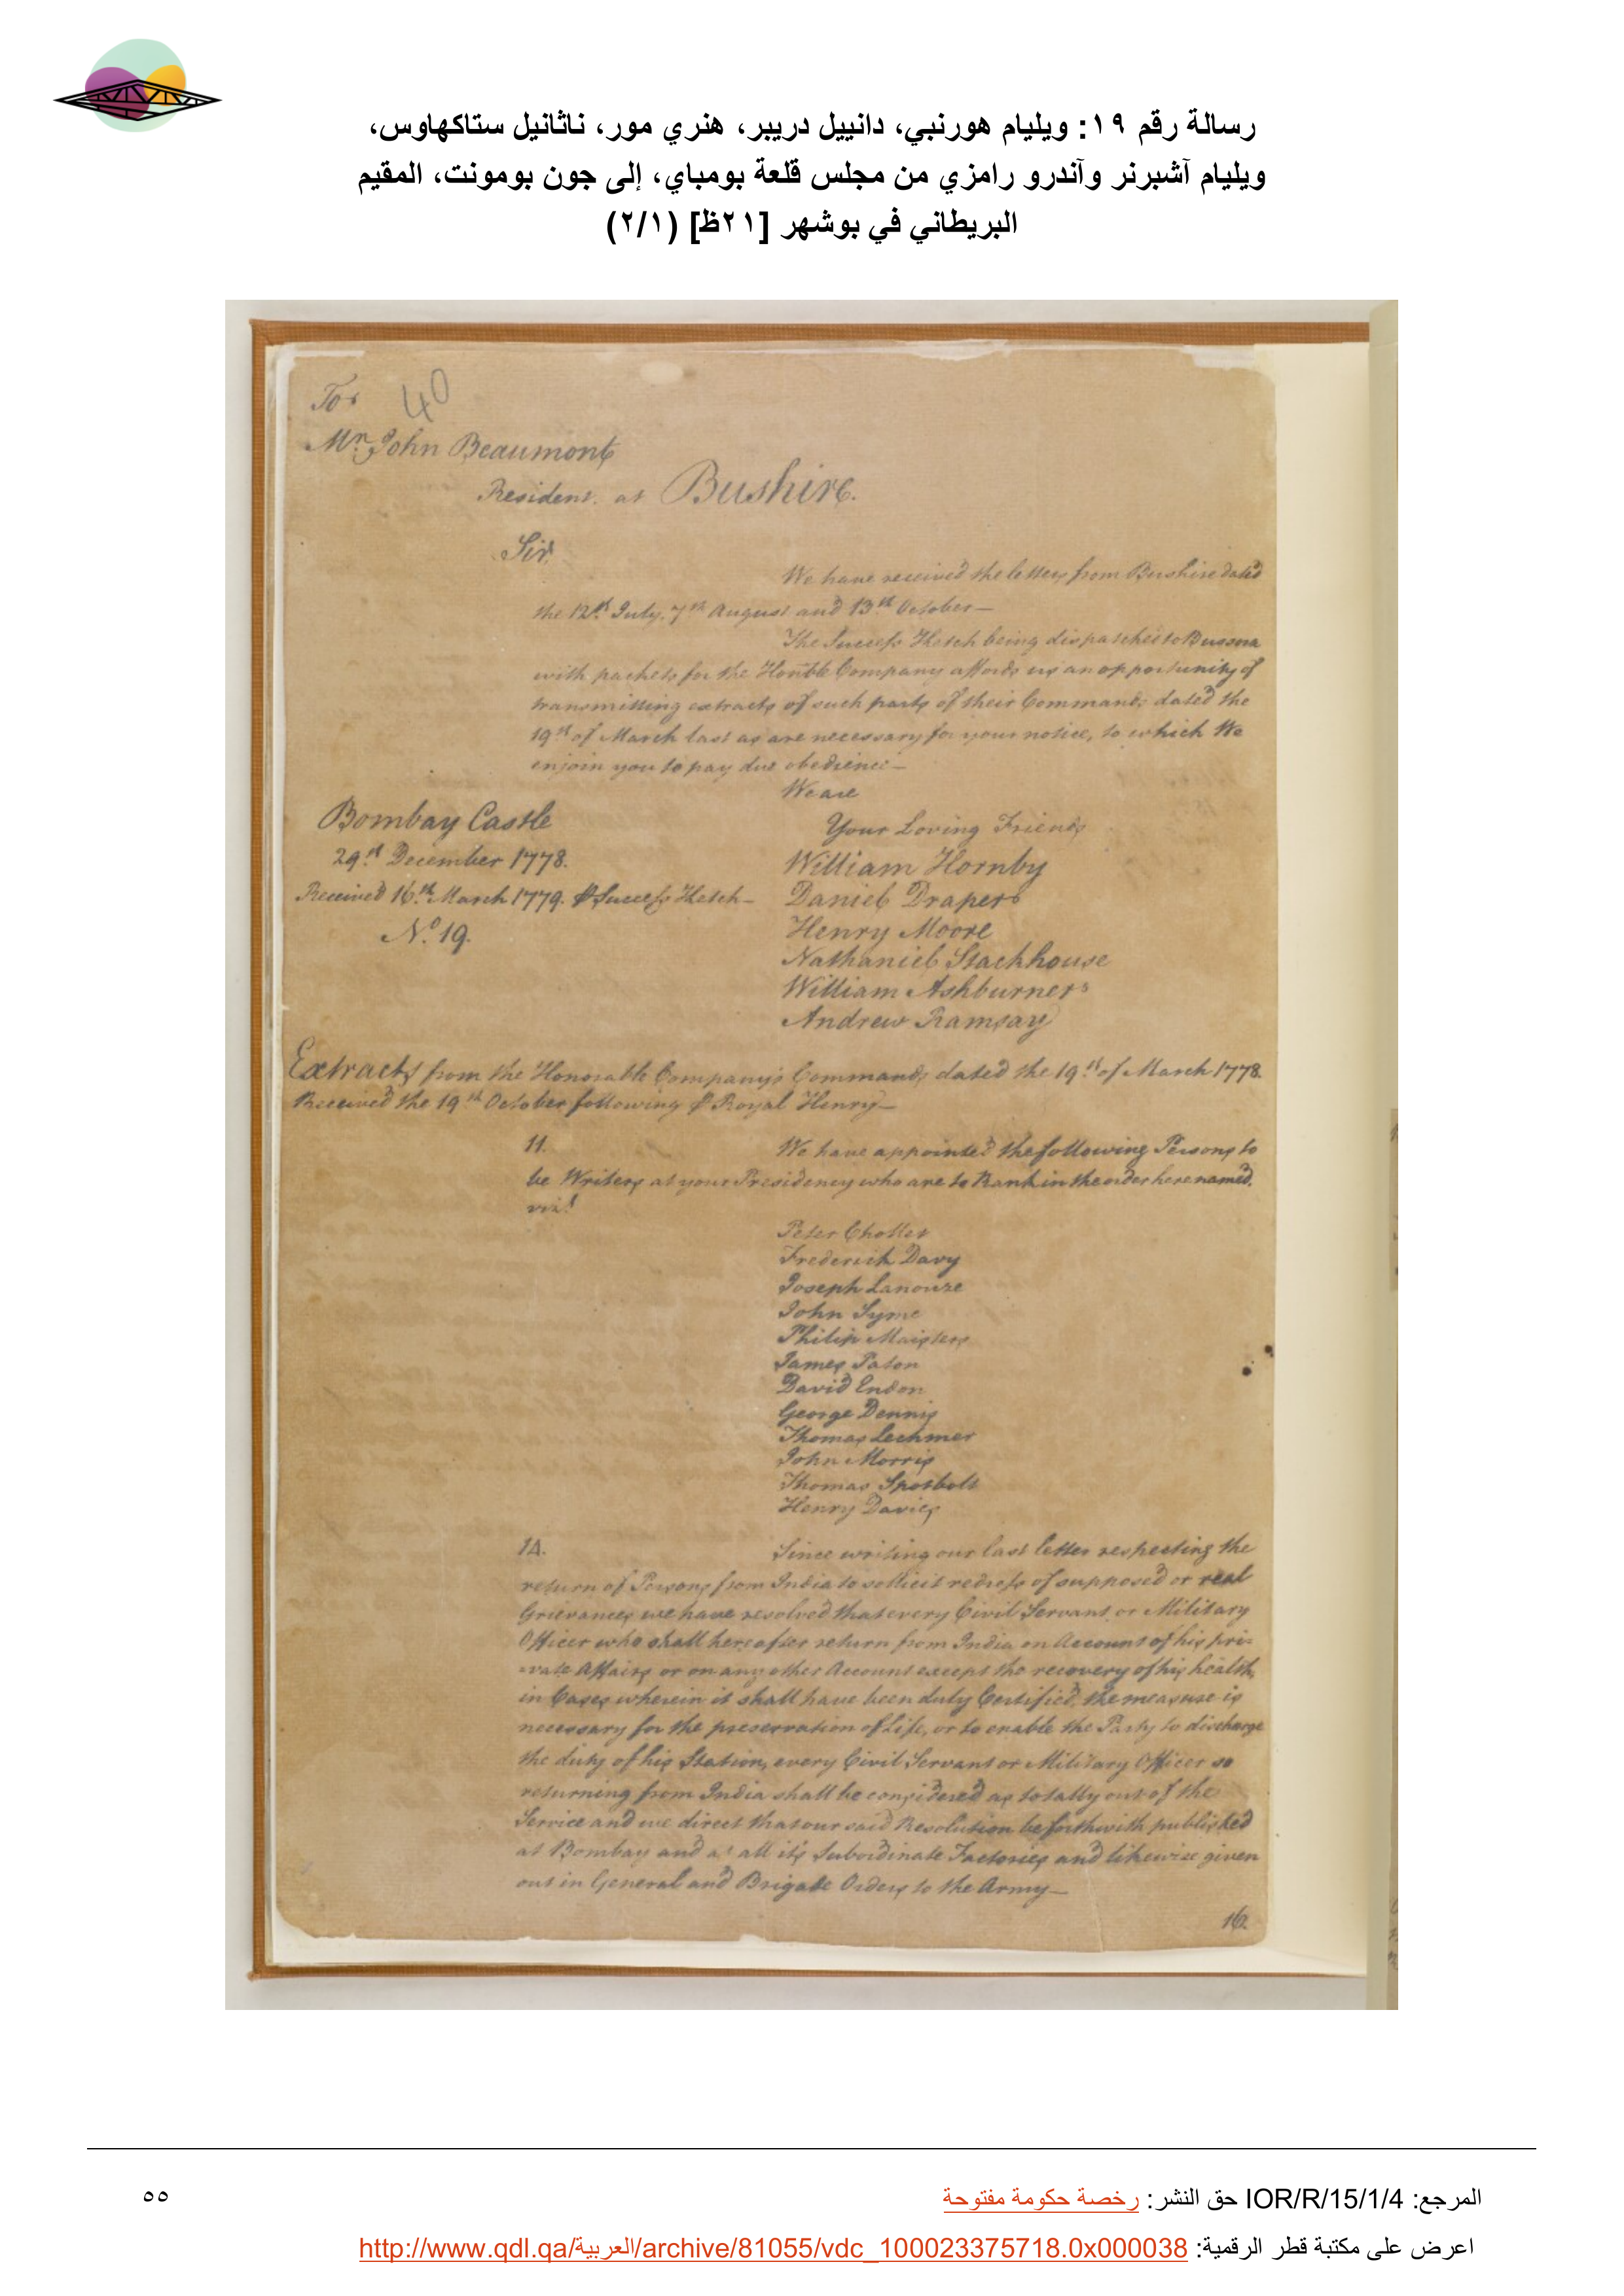 رسالة رقم ١٩: ويليام هورنبي، دانييل دريبر، هنري مور، ناثانيل ستاكهاوس،
ويليام آشبرنر وآندرو رامزي من مجلس قلعة بومباي، إلى جون بومونت، المقيم
البريطاني في بوشهر [٢١ظ] (٢/١)
To
40
Mr. John Beaumont
Resident at Bushire.
Sir,
We have received the letters from Bushire dated
the 12th July, 7th August and 13th October—
The Success Ketch being dispatched to Bussora
with packets for the Honble Company affords us an opportunity of
transmitting extracts of such parts of their Commands dated the
19th of March last as are necessary for your notice, to which We
enjoin you to pay due obedience—
We are
Your Loving Friends
Bombay Castle
29th December 1778.
Received 16th March 1779. ⅌ Success Ketch—
No. 19.
William Hornby
Daniel Draper
Henry Moore
Nathaniel Stackhouse
William Ashburner
Andrew Ramsay
Extracts from the Honorable Company's Commands dated the 19th of March 1778.
Received the 19th October following ⅌ Royal Henry—
11. We have appointed the following Persons to
be Writers at your Presidency who are to Rank in the order here named,
vizt.
Peter
Frederick Davy
Joseph
John Syme
Philip Maisters
James Paton
David
George Dennis
Thomas Lechmer
John Morris
Thomas
Henry Davies
14. Since writing our last letter respecting the
return of Persons from India to sollicit redress of supposed or real
Grievances we have resolved that every Civil Servant or Military
Officer who shall hereafter return from India on Account of his pri-
-vate Affairs or on any other Account except the recovery of his health,
in Cases wherein it shall have been duly Certified, the measure is
necessary for the preservation of Life, or to enable the Party to discharge
the duty of his Station, every Civil Servant or Military Officer so
returning from India shall be considered as totally out of the
Service and we direct that our said Resolution be forthwith published
at Bombay and at all it's Subordinate Factories and likewise given
out in General and Brigade Orders to the Army—
16.
المرجع: IOR/R/15/1/4 حق النشر: رخصة حكومة مفتوحة
٥٥
اعرض على مكتبة قطر الرقمية: http://www.qdl.qa/العربية/archive/81055/vdc_100023375718.0x000038